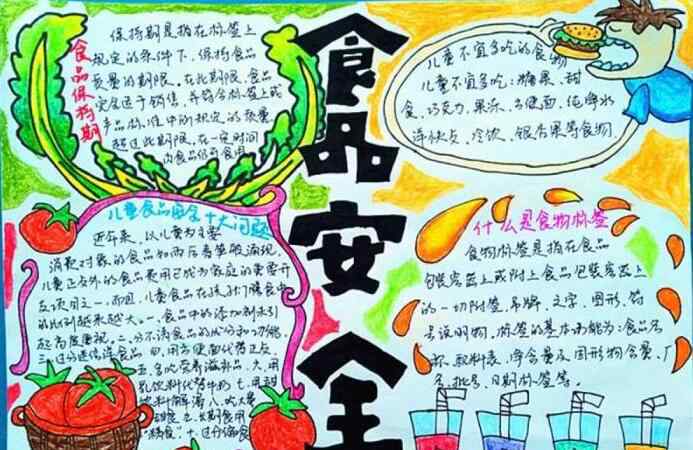 食品保持期
保持期是指在标签上
规定的条件下、保持食品
质量的期限。在此期限、食品
完全适于销售、并符合标签上或
产品标准中所规定的质量
超过此期限、在一定时间
内食品仍可食用
食品安全
儿童不宜多吃的食物
儿童不宜多吃：糖果、甜
食、巧克力、果冻、方便面、纯净水
洋快餐、冷饮、银杏果等食物
儿童食品安全十大问题
近年来、以儿童为主要
消费对象的食品如雨后春笋般涌现、
儿童正在外的食品费用已成为家庭的重要开
支项目之一、而且、儿童食品在孩子们膳食中
的比例越来越大。一、食品中的添加剂未引
起高度重视。二、分不清食品的成分和功能、
三、过分迷信洋食品 四、用方便面代替正友
五、多吃营养滋补品、六、用
乳饮料代替牛奶 七、用甜
饮料解渴 八、吃大量
甜食 九、长期食用
"精食"十、过分偏食
什么是食物标签
食物标签是指在食品
包装容器上或附上食品包装容器上
的一切附签、吊牌、文字、图形、符
号说明物、标签的基本功能为：食品名
称、配料表、净含量及固形物含量、厂
名、批号、日期标签等。